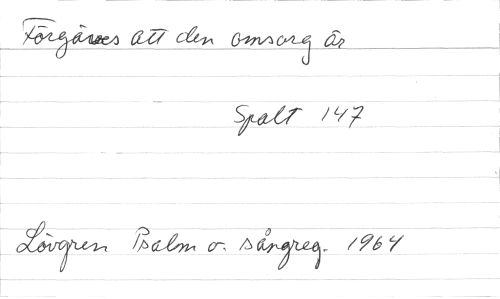 Förgäves att den omsorg är
Spalt 147
Lövgren Psalm o. sångreg. 1964